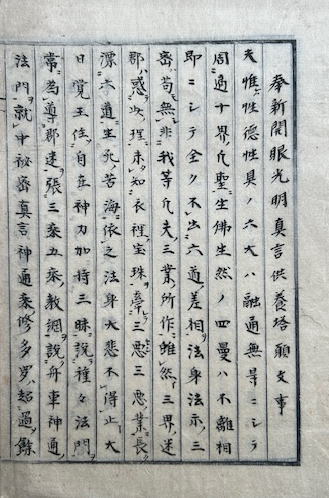 奉新開眼光明真言供養塔願文事
夫惟性德性具ノ六大ハ融通無㝵ニシテ
周遍十界凡聖生佛生然ノ四曼ハ不離相
即ニシテ全ク不出六道差相法身法尓三
密苟無非我等凡夫三業所作雖然三界迷
郡惑此理未知衣裡宝珠三思三思業長
漂六道生死苦海依之法身大悲不得止大
日覺王住自在神力加持三昧說種々法門
常為導郡迷張三乘五乘教網說舟車神通
法門就中祕密真言神通乘修多羅超過鎋